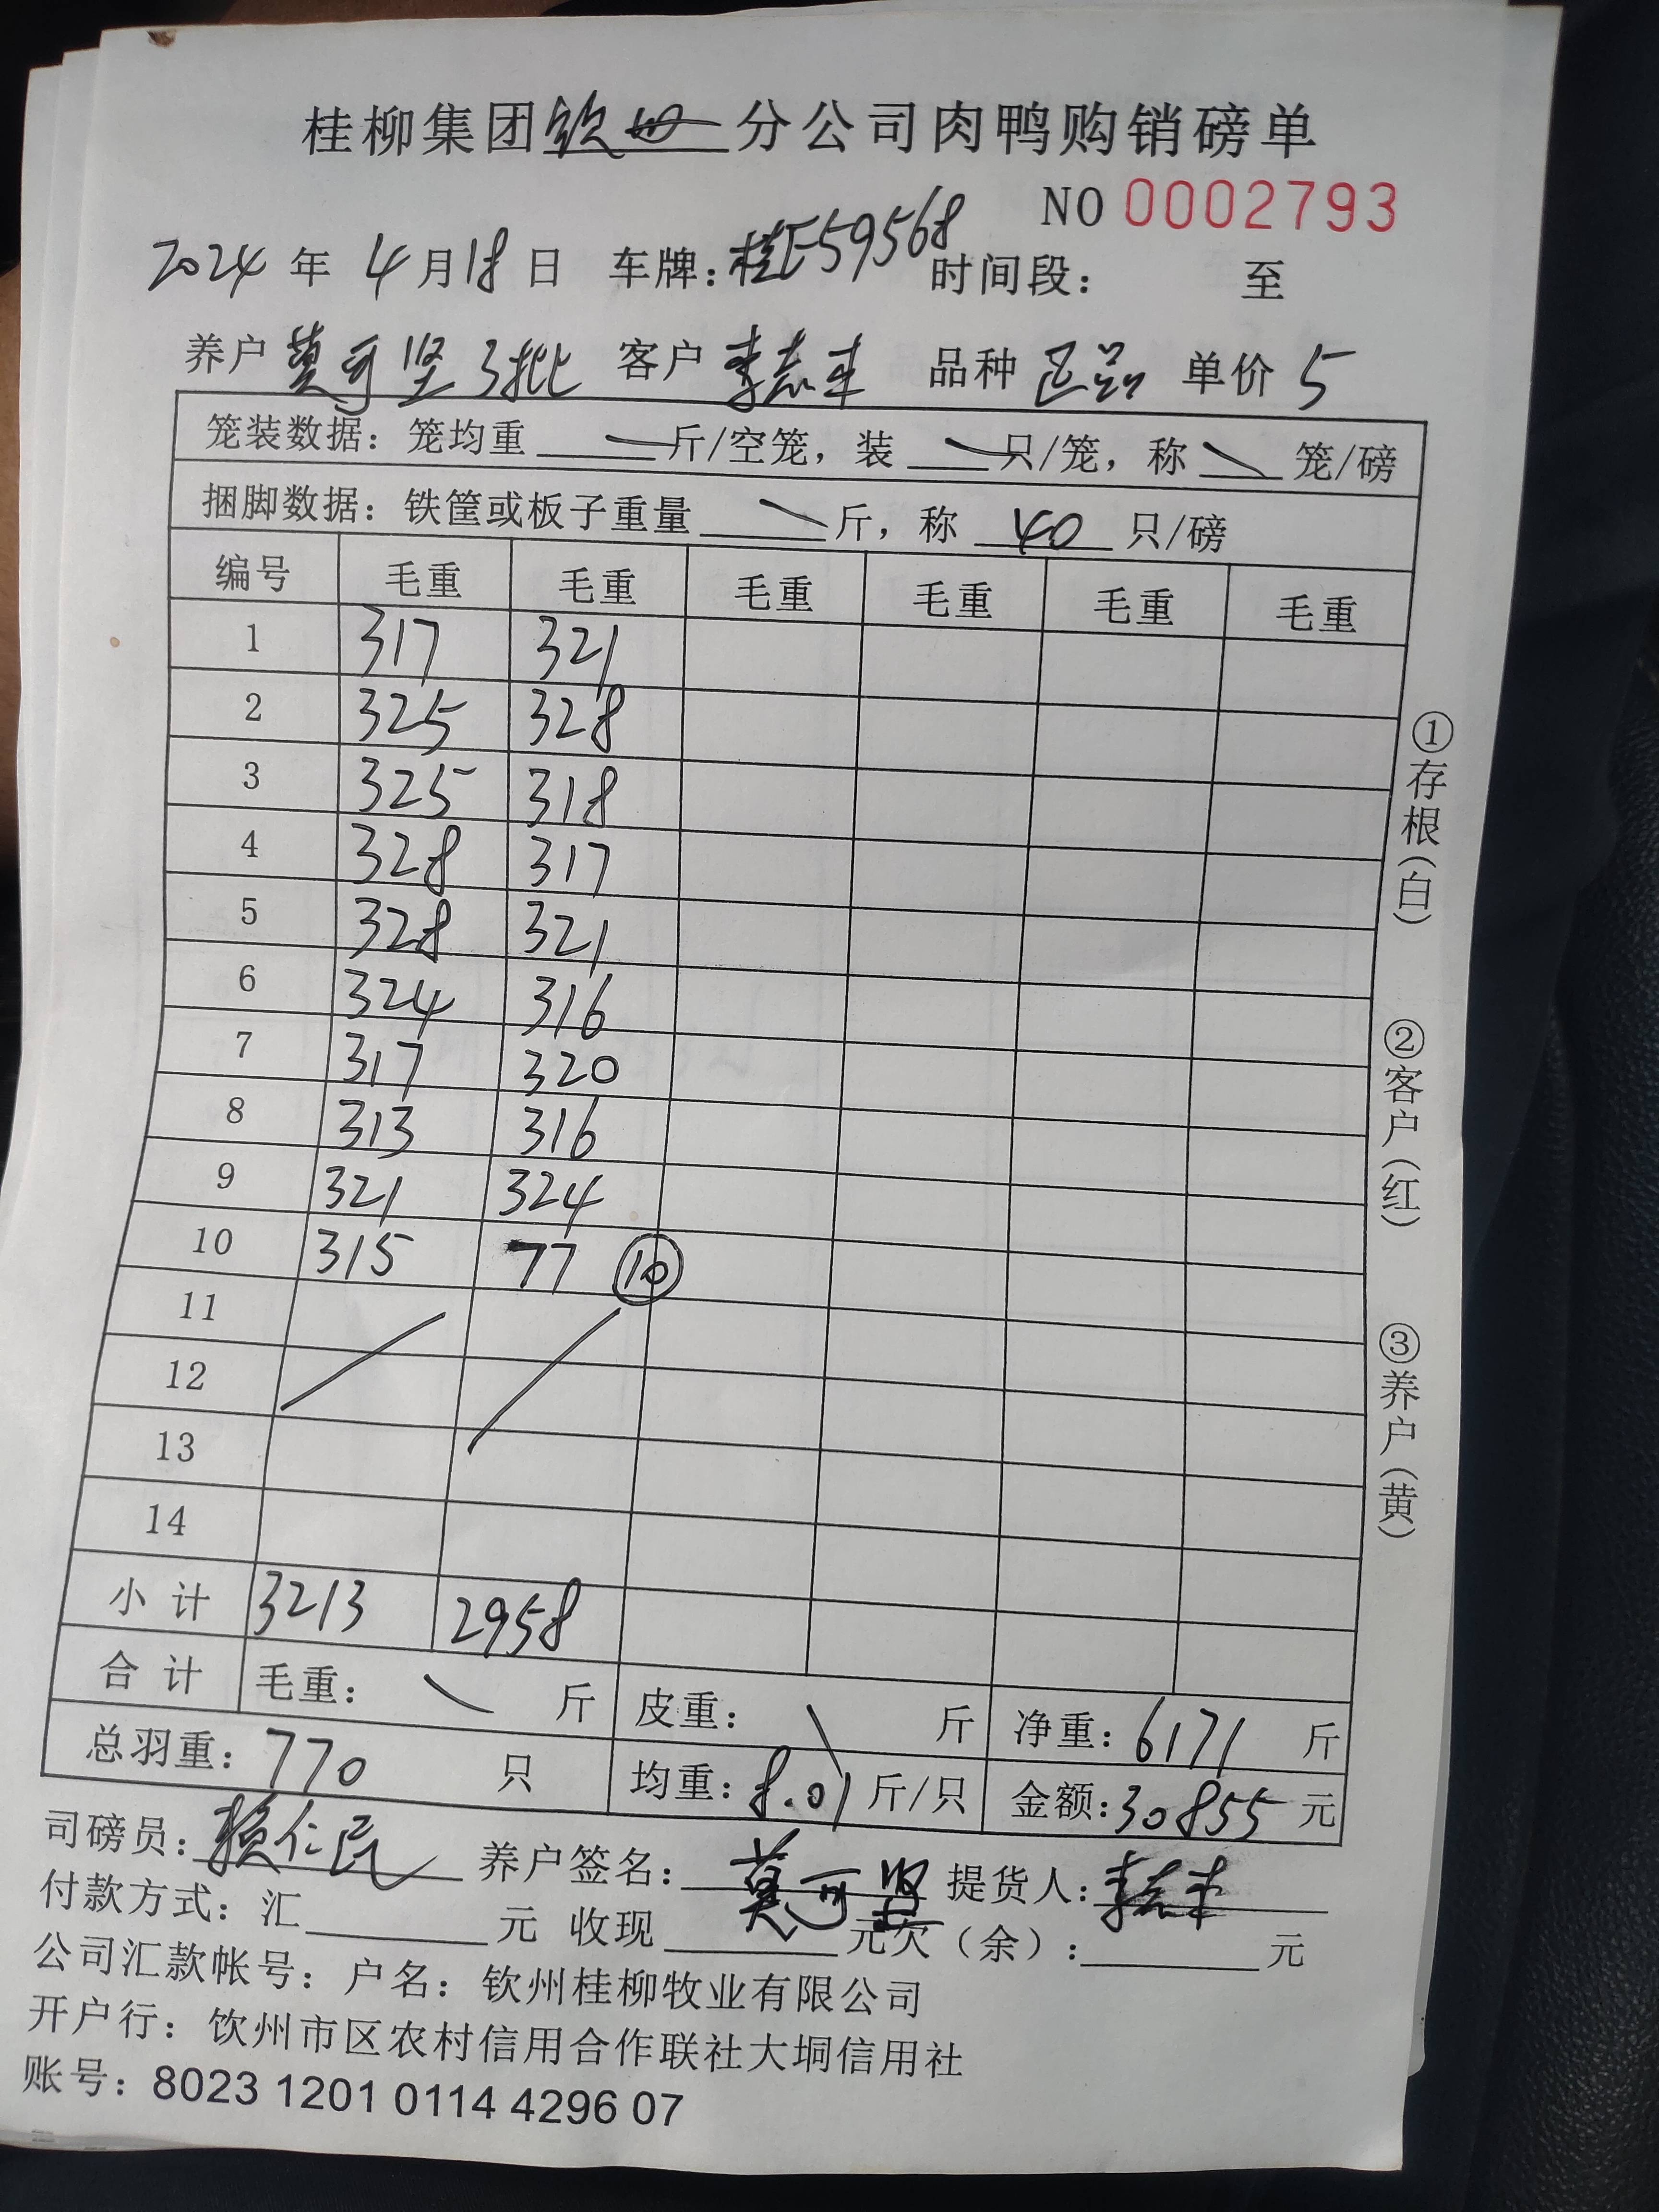 桂柳集团钦州分公司肉鸭购销磅单
NO 0002793
2024年4月18日 车牌:桂E59568 时间段: 至
养户 莫可坚3批 客户 李志丰 品种 正品 单价 5
笼装数据:笼均重 斤/空笼,装 只/笼,称 笼/磅
捆脚数据:铁筐或板子重量 斤,称 40 只/磅
编号 毛重 毛重 毛重 毛重 毛重 毛重
1 317 321
2 325 328
3 325 318
4 328 317
5 328 321
6 324 316
7 317 320
8 313 316
9 321 324
10 315 77 ⑩
11
12
13
14
小计 3213 2958
合计 毛重: 斤 皮重: 斤 净重:6171 斤
总羽重:770 只 均重:8.01斤/只 金额:30855元
司磅员:赖仁民 养户签名:莫可坚 提货人:李志丰
付款方式:汇 元 收现 元欠(余): 元
公司汇款帐号:户名:钦州桂柳牧业有限公司
开户行:饮州市区农村信用合作联社大垌信用社
账号:8023 1201 0114 4296 07
①存根(白)
②客户(红)
③养户(黄)